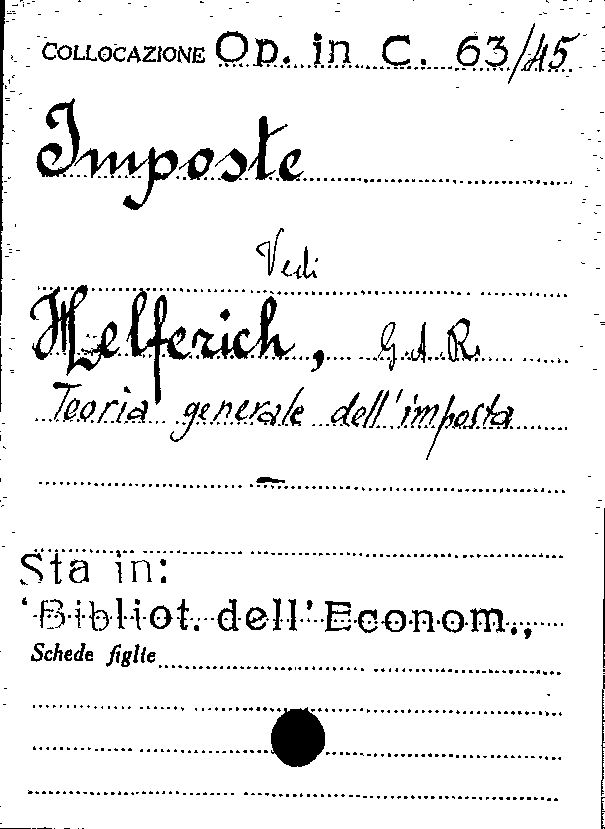 COLLOCAZIONE Op. in C. 63/45
Imposte
Vedi
Helferich, G. A. R.
Teoria generale dell'imposta
—
Sta in:
'Bibliot. dell'Econom.,
Schede figlie